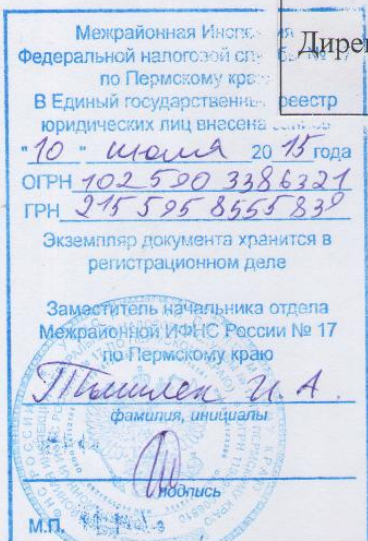 Межрайонная Инспекция
Федеральной налоговой службы № 17
по Пермскому краю
Дирек
В Единый государственный реестр
юридических лиц внесена запись
"10" июля 2015 года
ОГРН 102590 3386321
ГРН 215595 8555839
Экземпляр документа хранится в
регистрационном деле
Заместитель начальника отдела
Межрайонной ИФНС России № 17
по Пермскому краю
И. А.
фамилия, инициалы
подпись
М.П.